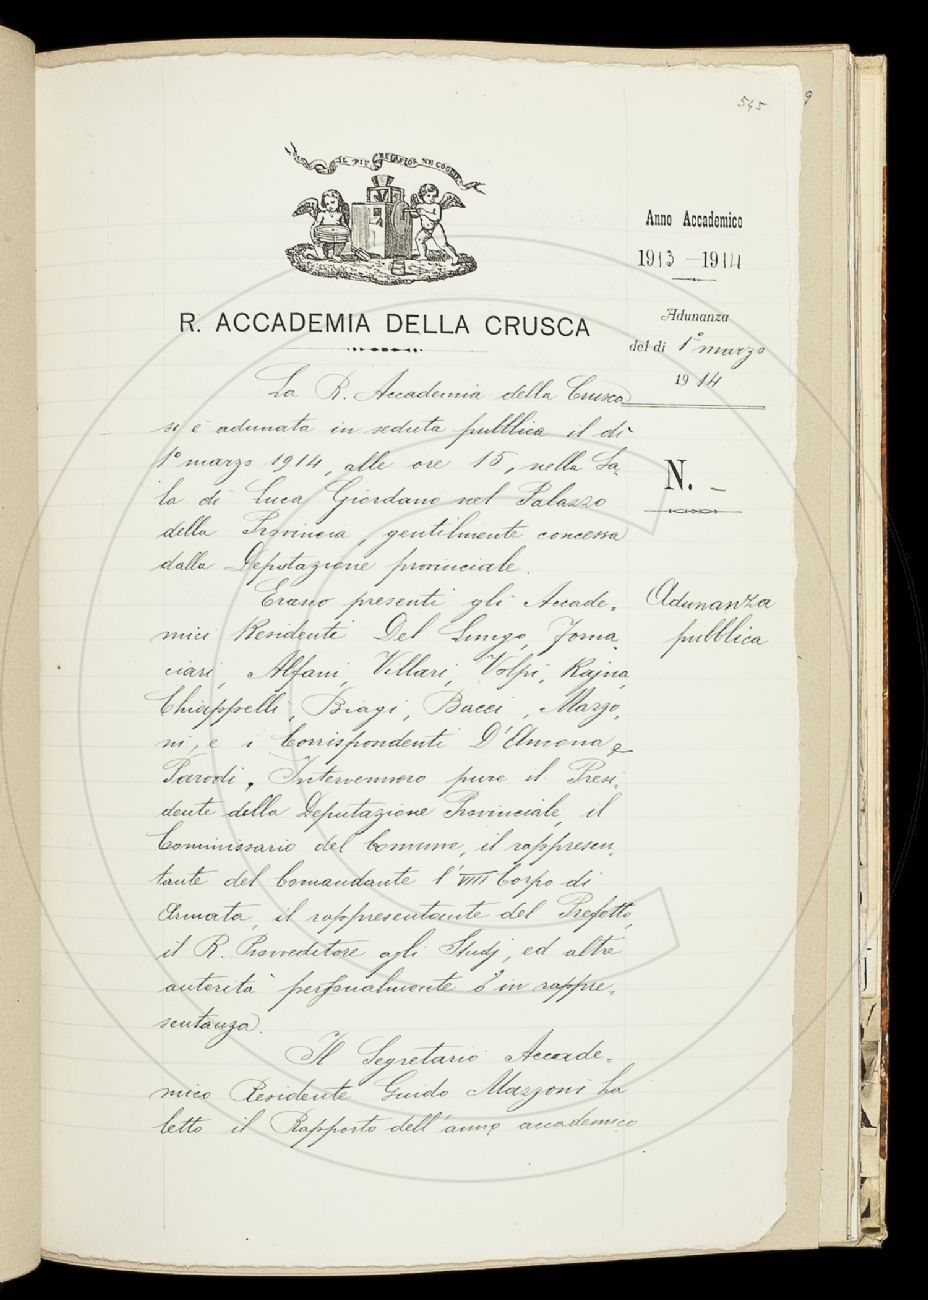 545
9
IL PIÙ BEL FIOR NE COGLIE
Anno Accademico
1913 - 1914
R. ACCADEMIA DELLA CRUSCA
Adunanza
del dì 1° marzo
1914
N. –
Adunanza
pubblica
La R. Accademia della Crusca
si è adunata in seduta pubblica il dì
1° marzo 1914, alle ore 15, nella Sa-
la di Luca Giordano nel Palazzo
della Provincia, gentilmente concessa
dalla Deputazione provinciale.
Erano presenti gli Accade-
mici Residenti Del Lungo, Forna-
ciari, Alfani, Villari, Volpi, Rajna,
Chiappelli, Biagi, Bacci, Mazzo-
ni, e i Corrispondenti D'Ancona e
Parodi. Intervennero pure il Presi-
dente della Deputazione Provinciale, il
Commissario del Comune, il rappresen-
tante del Comandante l'VIII Corpo di
Armata, il rappresentante del Prefetto,
il R. Provveditore agli Studj, ed altre
autorità personalmente o in rappre-
sentanza.
Il Segretario Accade-
mico Residente Guido Mazzoni ha
letto il Rapporto dell'anno accademico